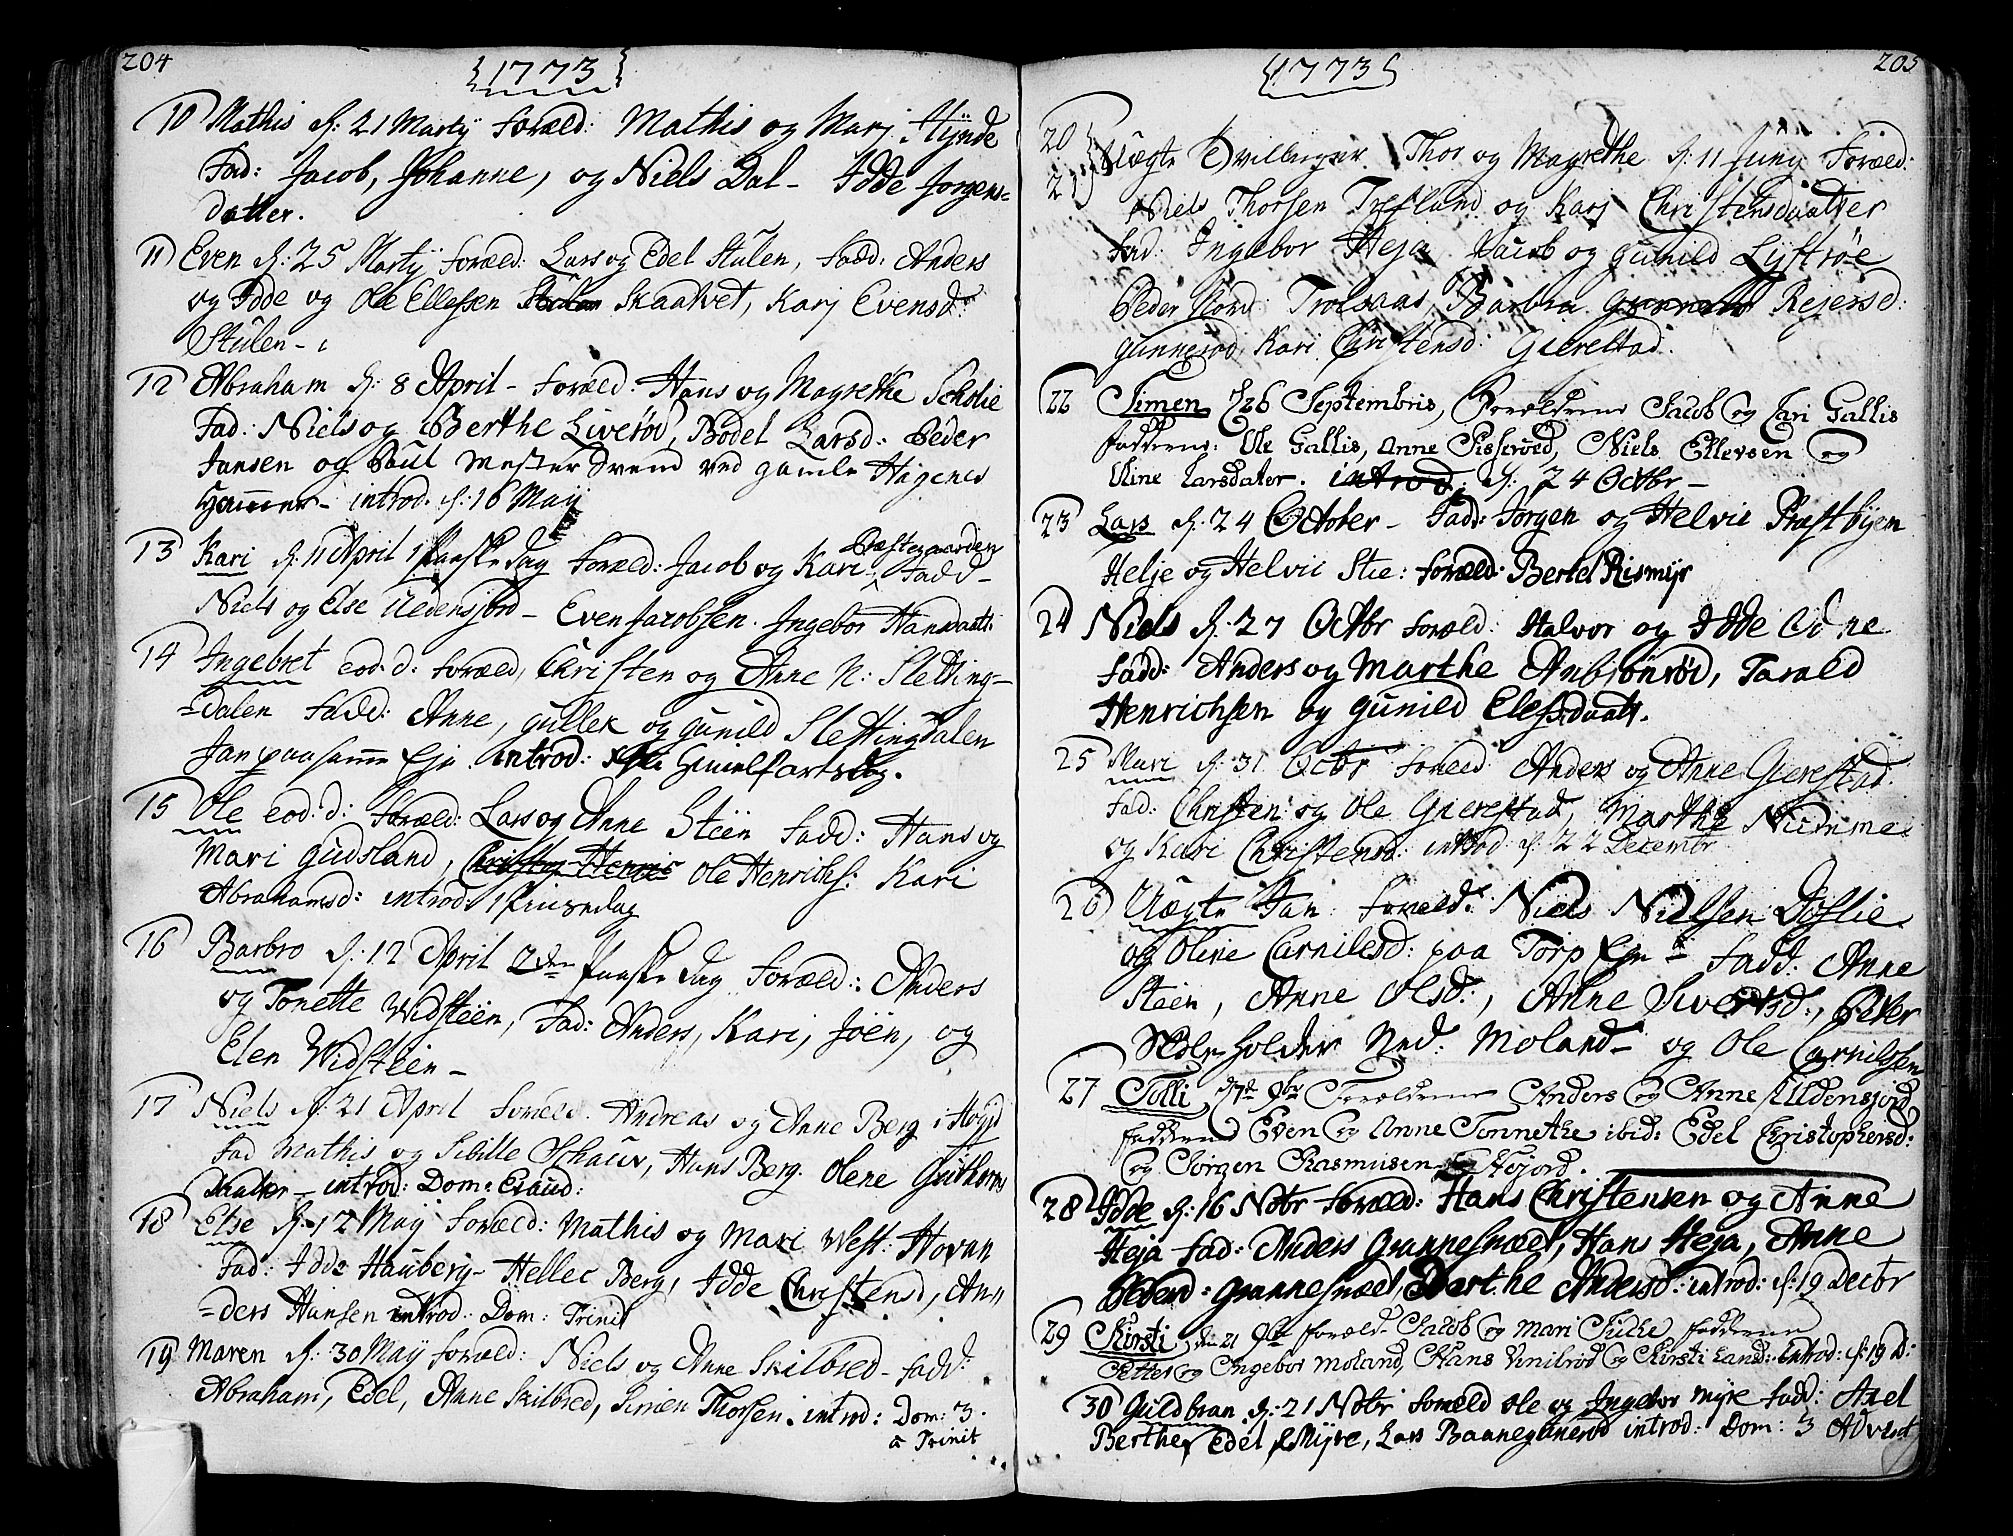 204
1773
10 Mathis d: 21 Martij Foræld: Mathis og Marj Hÿnde
Fad: Jacob, Johanne, og Niels Dal - Idde Jorgens-
datter.
11 Even d: 25 Martij foræld: Lars og Edel Stulen, fadd: Anders
og Idde og Ole Ellefsen Skaatvet, Karj Evensd:
Stulen -
12 Abraham d: 8 April - foræld: Hans og Magrethe Scholie
Fad: Niels og Berthe Liverød, Bodel Larsd: Peder
Jansen og Poul Mester Svend ved gamle Hagenes
Hammer - introd. d: 16 Maij
13 Kari d: 11 April 1 Paaske dag Foræld: Jacob og Kari Præstegaarden, Fadd -
Niels og Else Uldensjord - Even Jacobsen. Ingebor Hansdaatt:
14 Ingebret eod. d: foræld, Christen og Anne N: Sletting-
=dalen Fadd: Anne, Gullek og Gunild Slettingdalen
Jan paa samme Eje. introd: Himmelfartsdag.
15 Ole eod: d: foræld: Lars og Anne Steen Fadd: Hans og
Mari Gudsland, Ole Henrichs: Kari
Abrahamsd: introd: 1 Pinsedag
16 Barbro d: 12 April 2den Paaske dag Foræld: Anders
og Tonette Widsteen, Fad: Anders, Kari, Joen, og
Elen Widsteen -
17 Niels d: 21 April foræld. Andreas og Anne Berg i Høyd
Fad Mathis og Sibille Schauv, Hans Berg. Olene Guthorms
Daatter - introd: Dom: Exaud:
18 Else d: 12 Maij foræld: Mathis og Mari West: Hovan
Fad: Idde Hauberg - Hellec Berg, Idde Christensd, An=
=ders Hansen introd: Dom: Trinit
19 Maren d: 30 Maij foræld: Niels og Anne Skilbred - fadd:
Abraham, Edel, Anne Skilbred, Simen Thorsen. introd: Dom: 3.
a Trinit
205
1773
20
21 Uægte Tvillinger Thor og Magrethe d: 11 Junij Foræld:
Niels Thorsen Tresland og Karj Christensdaatter
Fad. Ingebor Heja Jacob og Gunild Lystrøe
Peder Nord: Trolvaas, Barbra Rejersd:
Gunnerød, Kari Christensd: Gierestad.
22 Simen d 26 Septembris, Forældrene Jacob og Kari Gallis
fadderne: Ole Gallis, Anne Fisserød, Niels Ellevsen og
Oline Larsdater. introd: d: 24 Octbr -
23 Lars d. 24 October - Fadd: Jorgen og Helvic Præstbÿen
Helje og Helvic Stie: foræld: Bertel Rismÿr
24 Niels d. 27 Octbr foræld: Halvor og Idde Odne
Fadd: Anders og Marthe Anbjønrød, Tarald
Henrichsen og Gunild Elefsdaatt.
25 Mari d. 31 Octbr foræld Anders og Anne Gierestad.
Fad: Christen og Ole Gierestad, Marthe Numme-
og Kari Christensd: introd d. 22 Decembr.
26 Uægte Jan foræld: Niels Nielsen Doslie
og Olene Carnilesd: paa Torp Ejn: Fadd: Anne
Steen, Anne Olsd:, Anne Sivertsd:, Peter
Skoleholder Ned: Moland - og Ole Carnilssen
27 Tolli d 7de 9br Forældrene Anders og Anne Uldensjord
fadderne Even og Anne Tonnethe ibid: Edel Christophersd:
og Jørgen Rasmusen Hejord.
28 Idde d: 16 Nobr foræld: Hans Christensen og Anne
Heja fad: Anders Grannesnæs, Hans Heja, Anne
Pedersd: Grannesnæs, Dorthe Andersd: introd: d. 19 Decbr
29 Kirsti den 21 9br foræld. Jacob og Mari Suche fadderne
Petter og Ingebor Moland, Hans Vinilrød og Kirsti Land: introd: d: 19 D:
30 Guldbran d: 21 Nobr foræld Ole og Ingebor Myre fadd: Axel
Berthe, Edel Mijre, Lars Baanegunerød introd: Dom: 3 Advent